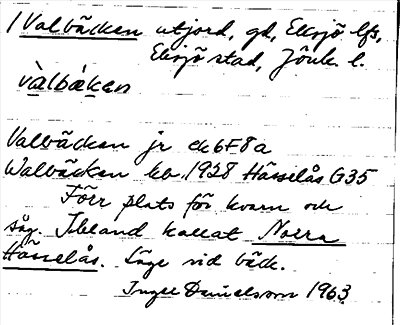 / Valbäcken utjord, gd, Eksjö lfs,
Eksjö stad, Jönk. l.
vàlbäkən
Valbäcken jr ek 6F8a
Walbäcken kb. 1928 Hässelås G35
Förr plats för kvarn och
såg. Ibland kallat Norra
Hässelås. Läge vid bäck.
Inger Danielsson 1963